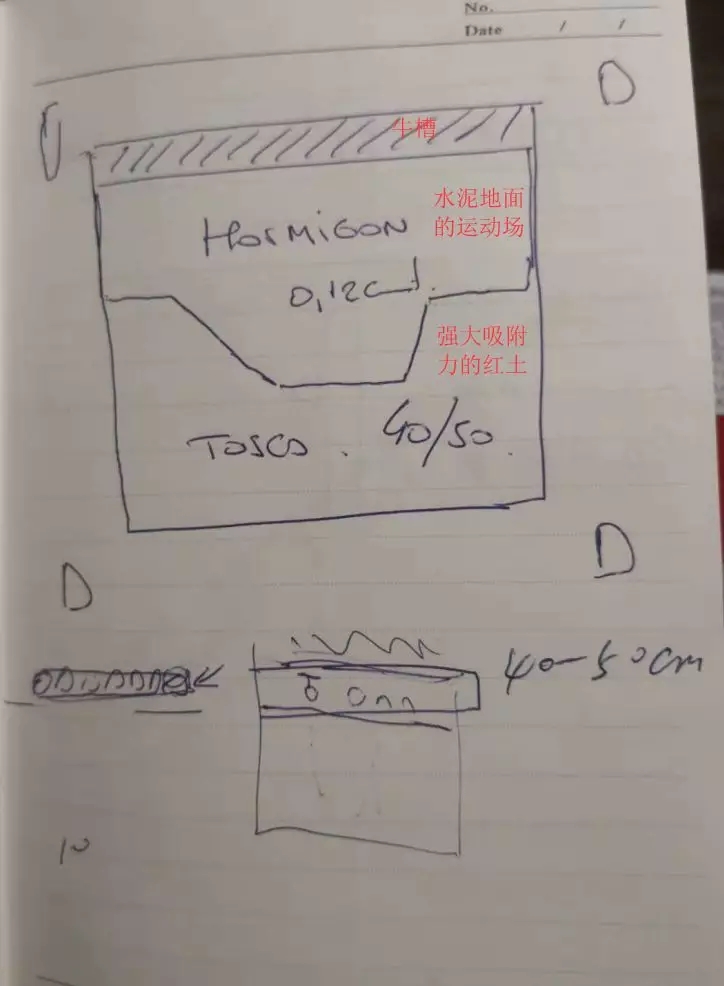 No.
Date / /
D
牛槽
水泥地面
的运动场
HORMIGON
0,12c
强大吸附
力的红土
TOSCO . 40/50.
D
D
40-50cm
10